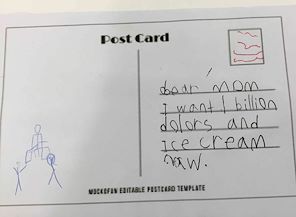 Post Card
dear mom
I want 1 billion
dolors and
Ice cream
naw.
MOCKOFAN EDITABLE POSTCARD TEMPLATE